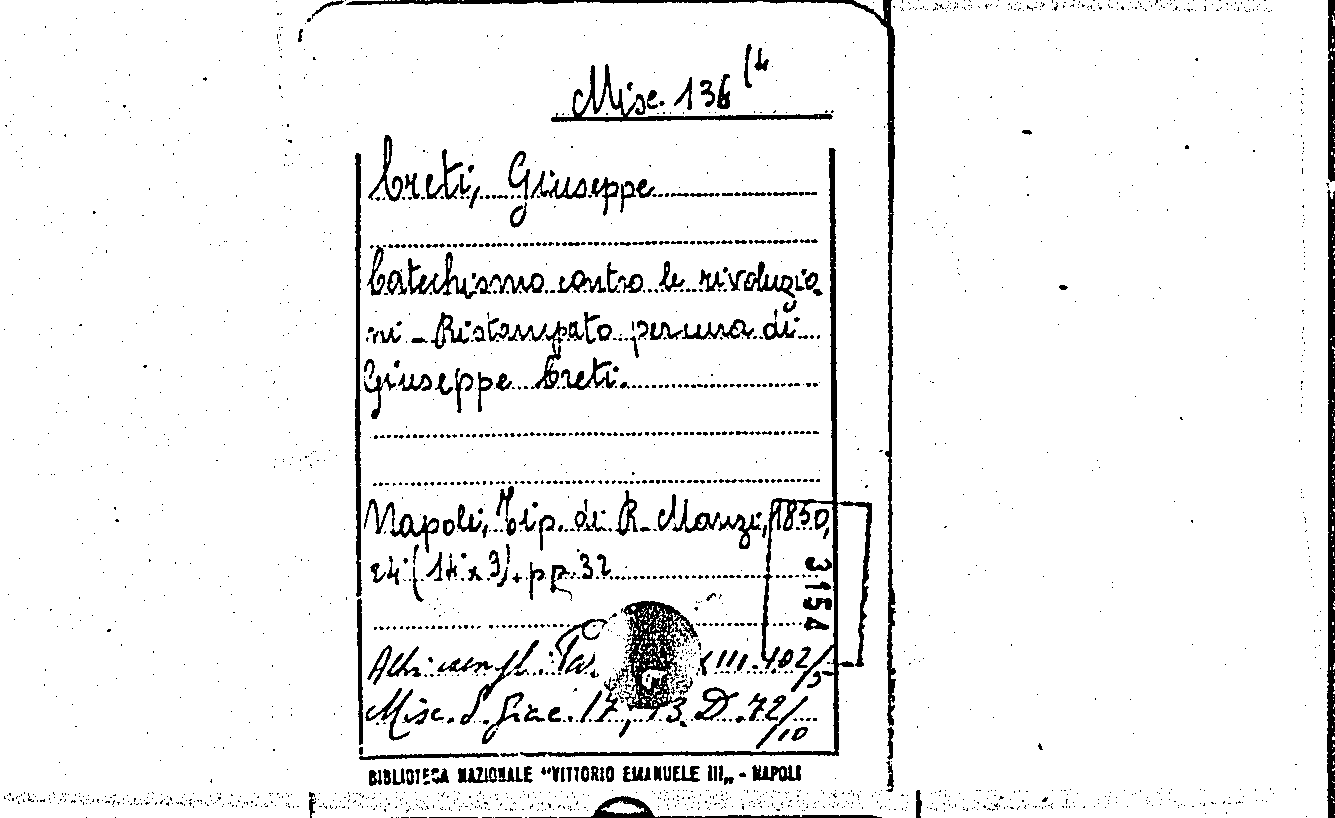 Misc. 136 (4
Creti, Giuseppe
Catechismo contro le rivoluzio
ni - Ristampato per cura di
Giuseppe Creti.
Napoli, Tip. di R. Manzi, 1850,
24° (14 x 3). pp. 32
3154
Altri esempl. III. 102/5
Misc. S. Giac. 17, 13. D. 72/10
BIBLIOTECA NAZIONALE "VITTORIO EMANUELE III„ - NAPOLI